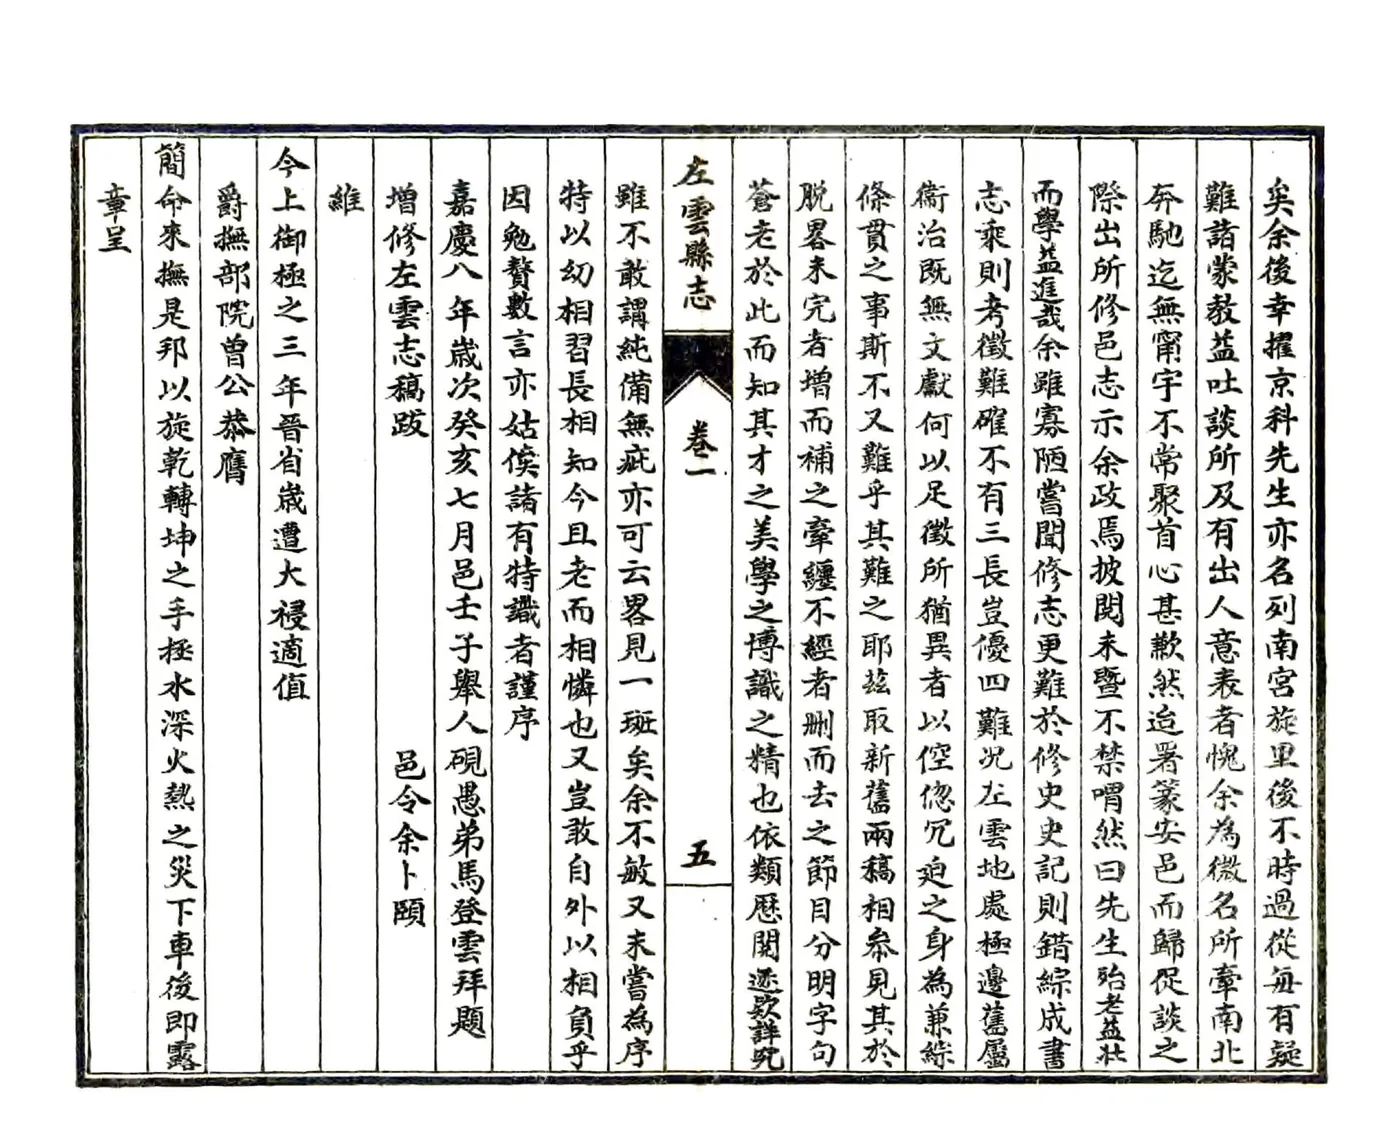 矣余後幸擢京科先生亦名列南宮旋里後不時過從每有疑
難諸蒙教益吐談所及有出人意表者愧余為微名所牽南北
奔馳迄無甯宇不常聚首心甚歉然迨署篆安邑而歸促談之
際出所修邑志示余政焉披閱未暨不禁喟然曰先生殆老益壯
而學益進哉余雖寡陋嘗聞修志更難於修史史記則錯綜成書
志乘則考徵難確不有三長豈優四難況左雲地處極邊舊屬
衞治既無文獻何以足徵所猶異者以倥偬冗迫之身為兼綜
條貫之事斯不又難乎其難之耶茲取新舊兩稿相叅見其於
脱畧未完者增而補之牽纏不經者刪而去之節目分明字句
蒼老於此而知其才之美學之博識之精也依類歷閱遂欵詳究
左雲縣志
卷一
五
雖不敢謂純備無疵亦可云畧見一斑矣余不敏又未嘗為序
特以幼相習長相知今且老而相憐也又豈敢自外以相負乎
因勉贅數言亦姑俟諸有特識者謹序
嘉慶八年歲次癸亥七月邑壬子舉人硯愚弟馬登雲拜題
增修左雲志稿跋
邑令余卜頤
維
今上御極之三年晉省歲遭大祲適值
爵撫部院曾公恭膺
簡命來撫是邦以旋乾轉坤之手拯水深火熱之災下車後即露
章呈